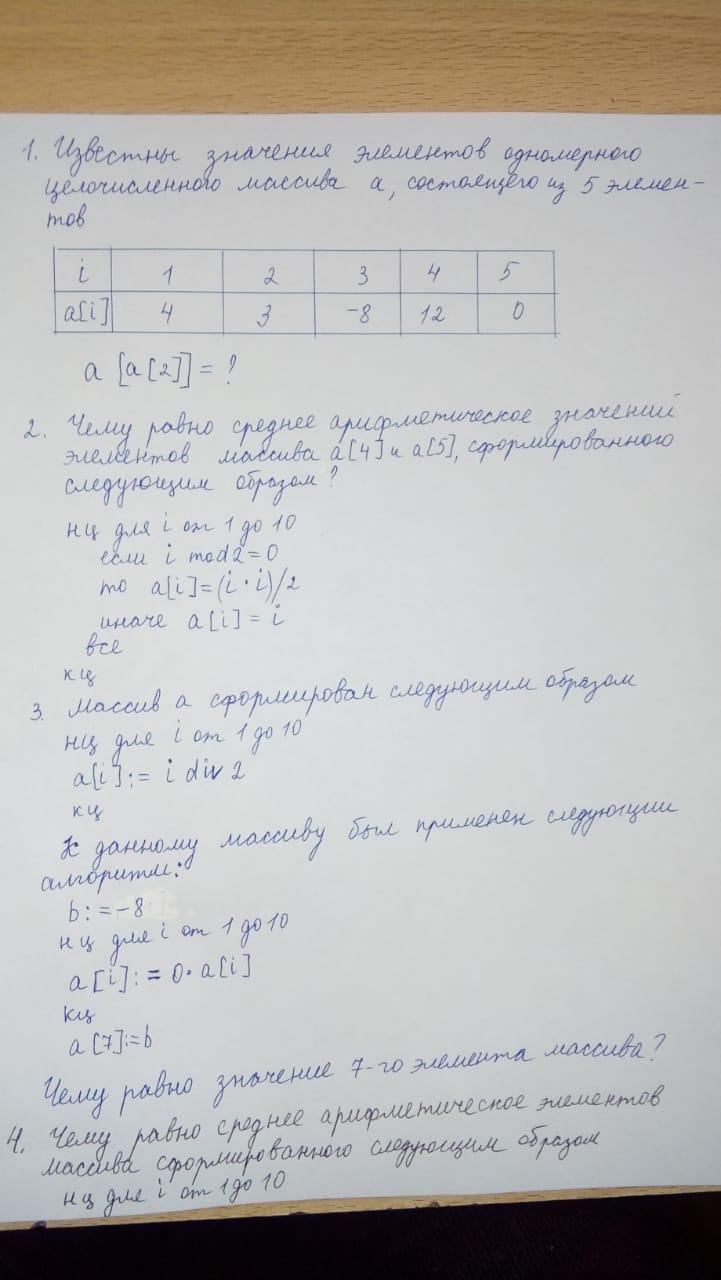 1. Известны значения элементов одномерного
целочисленного массива a, состоящего из 5 элемен-
тов
i 1 2 3 4 5
a[i] 4 3 -8 12 0
a [a[2]] = ?
2. Чему равно среднее арифметическое значений
элементов массива a[4] и a[5], сформированного
следующим образом?
нц для i от 1 до 10
если i mod 2 = 0
то a[i] = (i · i)/2
иначе a[i] = i
все
кц
3. Массив a сформирован следующим образом
нц для i от 1 до 10
a[i] := i div 2
кц
К данному массиву был применен следующии
алгоритм:
b: = -8
нц для i от 1 до 10
a[i] := 0 · a[i]
кц
a[7] := b
Чему равно значение 7-го элемента массива?
4. Чему равно среднее арифметическое элементов
массива сформированного следующим образом
нц для i от 1 до 10